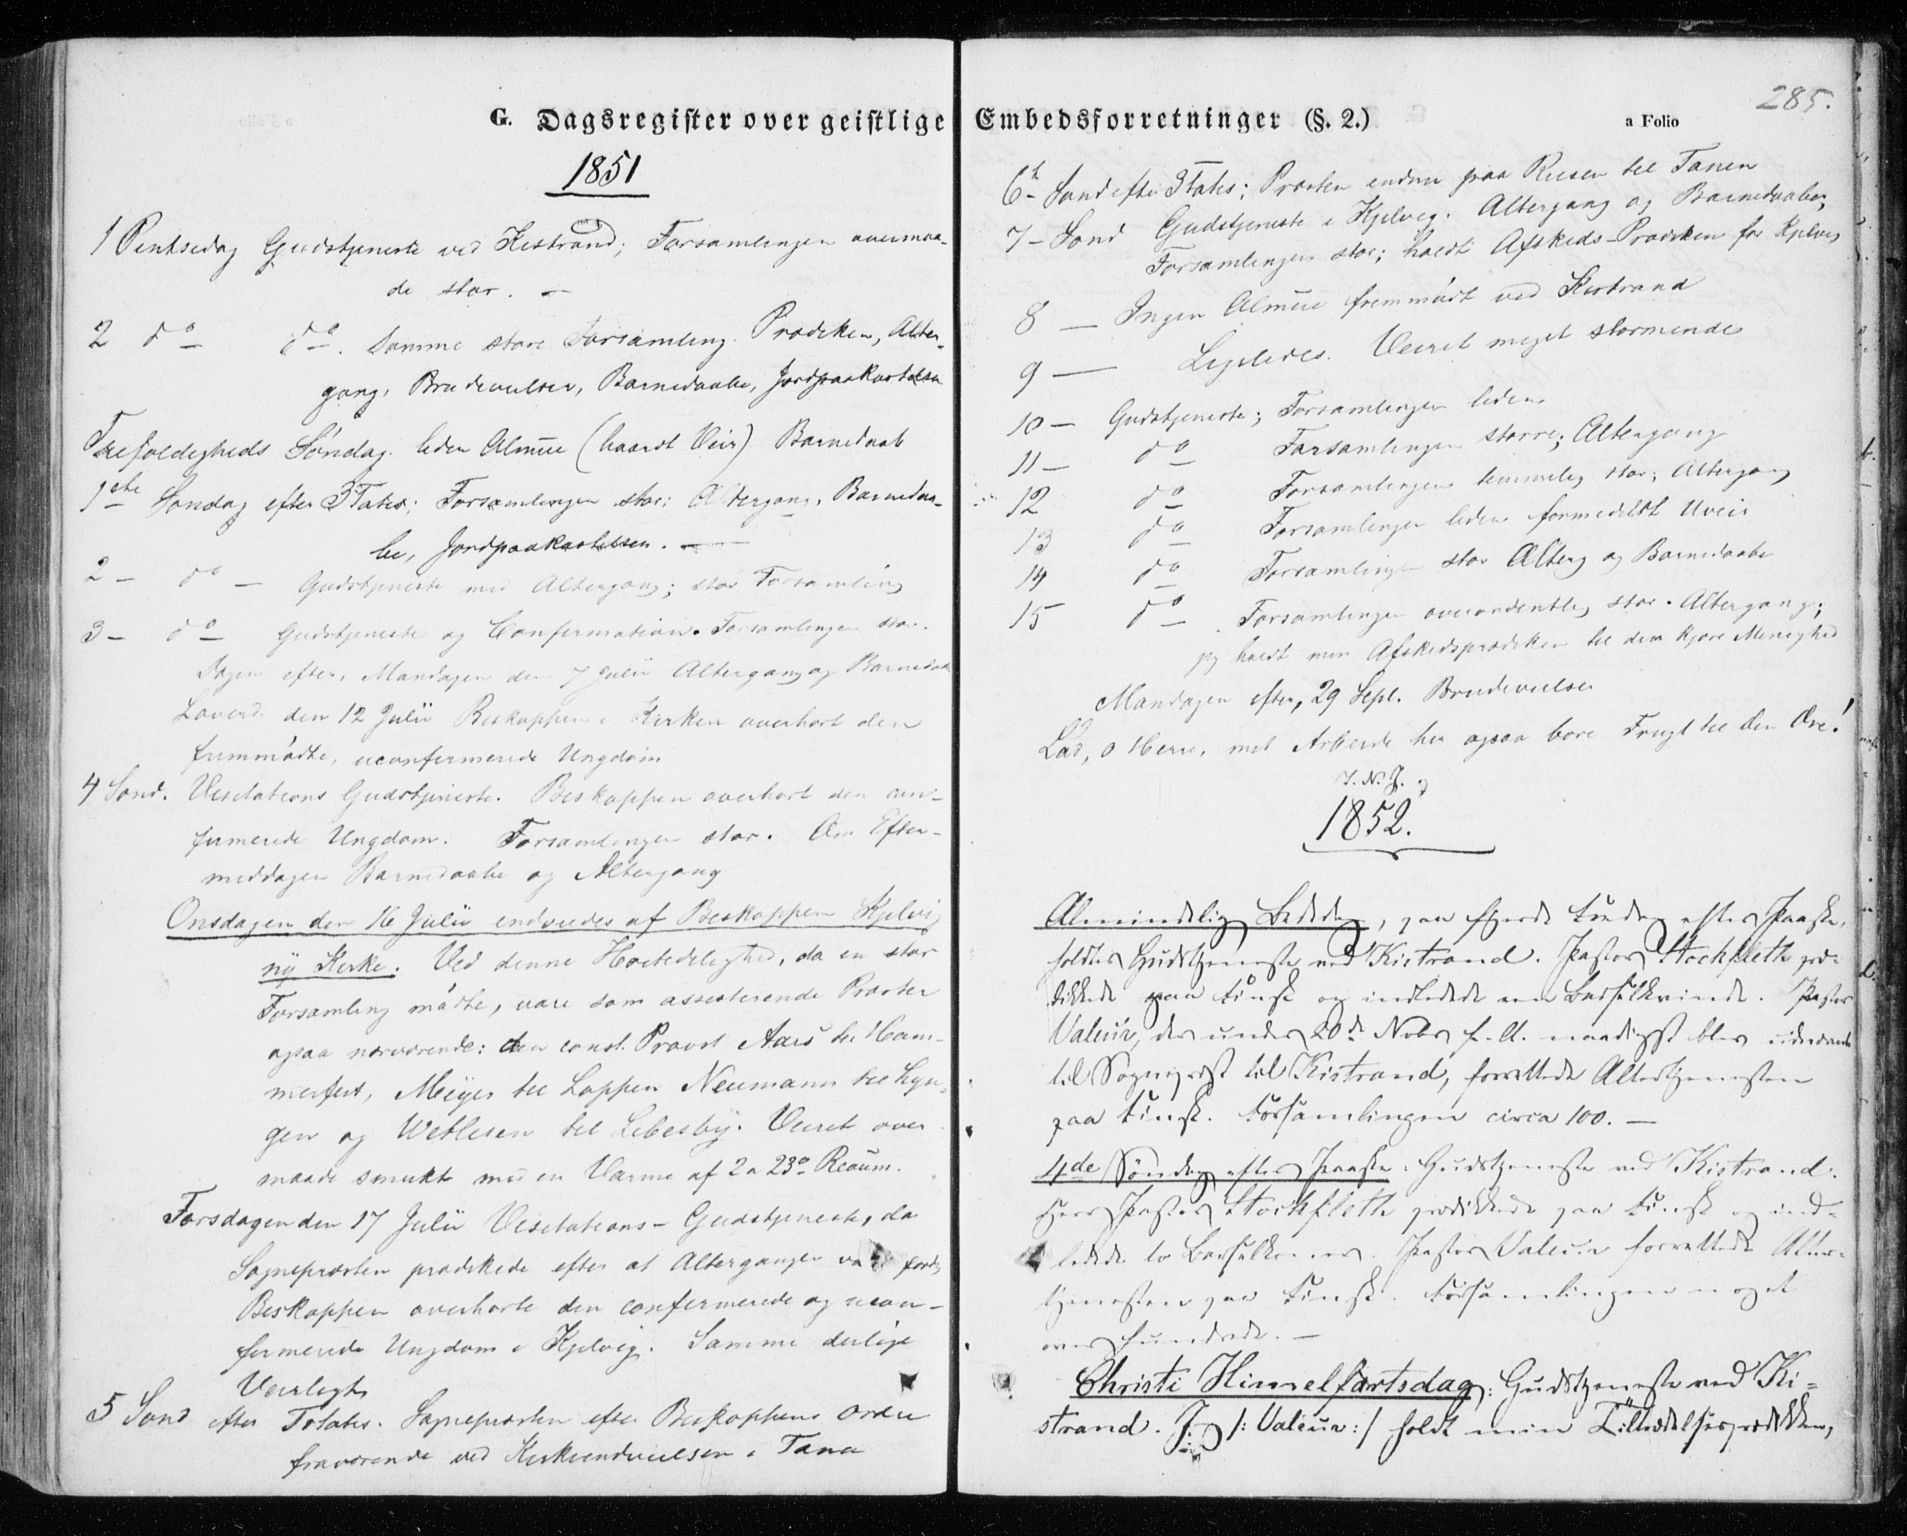 G. Dagsregister over geistlige
1851
1 Pentsedag Gudstjeneste ved Kistrand; Forsamlingen overmaa-
de stor. —
2 do do. Samme store Forsamling. Præken, Alter-
gang, Brudevielser, Barnedaabe, Jordpaakastelse
Trefoldigheds Søndag liden Almue (haardt Veir) Barnedaab
1ste Søndag efter Trtatis; Forsamlingen stor; Altergang, Barnedaa-
be, Jordpaakastelsen. —
2 – do – Gudstjeneste med Altergang; stor Forsamling
3 – do Gudstjeneste og Confirmation. Forsamlingen stor.
Dagen efter, Mandagen den 7 Julii Altergang og Barnedaab
Løverd. den 12 Julii Biskoppen i Kirken overhørt den
fremmødte, uconfirmerede Ungdom
4 Sønd. Visitations Gudstjeneste. Biskoppen overhørt den con-
firmerede Ungdom. Forsamlingen stor. Om Efter-
middagen Barnedaabe og Altergang
Onsdagen den 16 Julii indviedes af Biskoppen Kjelvig
ny Kirke. Ved denne Høitidelighed, da en stor
Forsamling mødte, vare som assisterende Præster
ogsaa nærværende: den const. Provst Aars til Ham-
merfest, Meÿer til Loppen Neumann til Lyn-
gen og Wetlesen til Lebesby. Veiret over
maade smukt med en Varme af 2 a 23° Reaum.
Torsdagen den 17 Julii Visitations-Gudstjeneste, da
Sognepræsten prædikede efter at Altergangen var forbi
Biskoppen overhørte den confirmerede og ucon-
firmerede Ungdom i Kjelvig. Samme deilige
Veirligt
5 Sønd efter Trtatis. Sognepræsten efter Biskoppens Ordre
fraværende ved Kirkeindvielsen i Tana
Embedsforretninger (§. 2.)
a Folio
285.
6te Sønd efter Trtatis; Præsten endnu paa Reisen til Tanen
7 – Sønd Gudstjeneste i Kjelvig. Altergang og Barnedaabe,
Forsamlingen stor; holdt Afskeds-Præken for Kjelvig
8 — Ingen Almue fremmødt ved Kistrand
9 — Ligeledes. Veiret meget stormende
10 – Gudstjeneste; Forsamlingen liden
11 – do Forsamlingen større; Altergang
12 do Forsamlingen temmelig stor; Altergang
13 do Forsamlingen liden formedelst Uveir
14 do Forsamlingen stor Alterg og Barnedaabe
15 do Forsamlingen overordentlig stor. Altergang;
jeg holdt min Afskedsprædiken til den kjære Menighed
Mandagen efter, 29 Sept. Brudevielse
Lad, o Herre, mit Arbeide her ogsaa bære Frugt til din Ære!
I. N. J.
1852.
Almindelig Bededag, paa fjerde Søndag efter Paaske,
holdtes Gudstjeneste ved Kistrand. Pastor Stockfleth præ-
dikede paa Finsk og indledede en Barselkvinde. Pastor
Valeur, der under 20de Novbr f. A. naadigst blev udnævnt
til Sognepræst til Kistrand, forrettede Altertjenesten
paa Finsk. Forsamlingen circa 100. —
4de Søndag efter Paaske: Gudstjeneste ved Kistrand.
Herr Pastor Stockfleth prædikede paa Finsk og ind-
ledede to Barselkoner. Pastor Valeur forrettede Alter-
tjenesten paa Finsk. Forsamlingen noget
over hundrede. —
Christi Himmelfartsdag: Gudstjeneste ved Ki-
strand. Jeg /: Valeur :/ holdt min Tiltrædelsesprædiken,